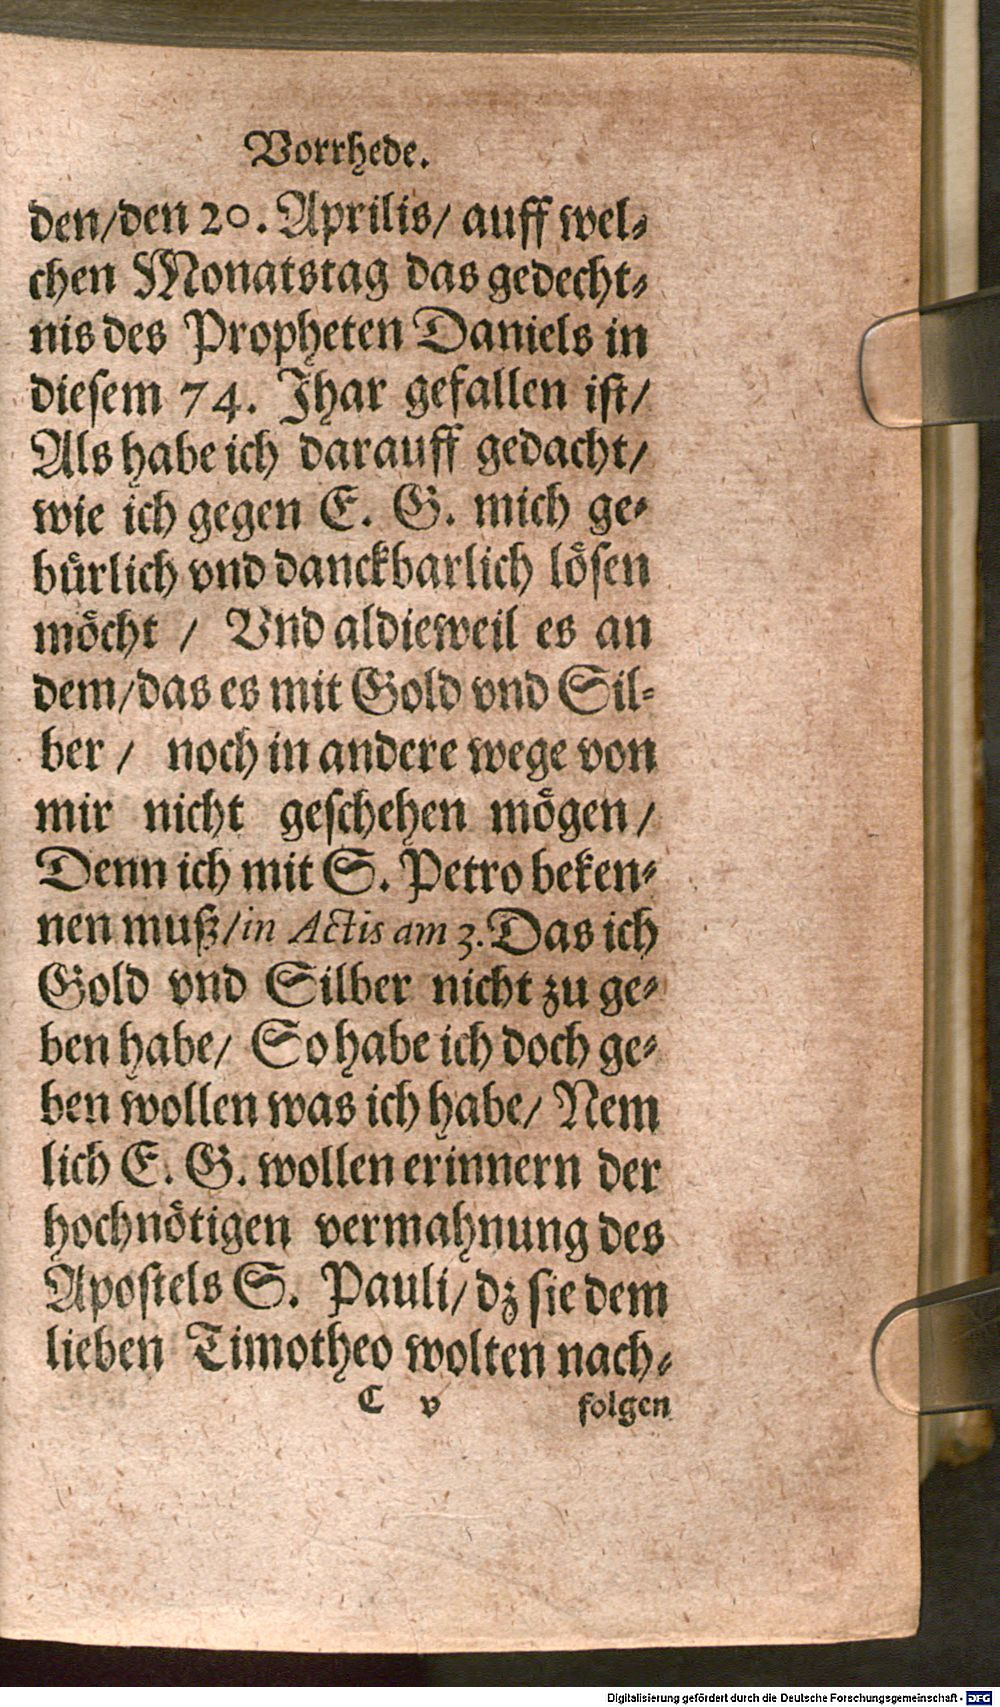 Vorrhede.
den/den 20. Aprilis/ auff wel-
chen Monatstag das gedecht-
nis des Propheten Daniels in
diesem 74. Jhar gefallen ist/
Als habe ich darauff gedacht/
wie ich gegen E. G. mich ge-
bürlich vnd danckbarlich lösen
möcht / Vnd aldieweil es an
dem/das es mit Gold vnd Sil-
ber / noch in andere wege von
mir nicht geschehen mögen/
Denn ich mit S. Petro beken-
nen muß/in Actis am 3. Das ich
Gold vnd Silber nicht zu ge-
ben habe/ So habe ich doch ge-
ben wollen was ich habe/ Nem
lich E. G. wollen erinnern der
hochnötigen vermahnung des
Apostels S. Pauli/ dz sie dem
lieben Timotheo wolten nach-
C v folgen
Digitalisierung gefördert durch die Deutsche Forschungsgemeinschaft - DFG